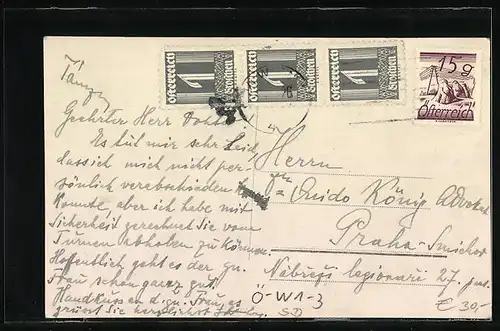 Tänze
Geehrter Herr Doktor
Es tut mir sehr leid
dass ich mich nicht per-
sönlich verabschieden
konnte, aber ich habe mit
Sicherheit gerechnet Sie vom
Turnen abholen zu können.
Hoffentlich geht es der gn.
Frau schon ganz gut.
Handkuss an d. gn. Frau, es
grüsst Sie herzlichst
Österreich 1 Groschen
Österreich 1 Groschen
Österreich 1 Groschen
15 g
Österreich
Herrn
Guido König Advokat
Praha-Smichov
Nábřeží legionarů 27
Ö-W1-3
SD
€ 30,-